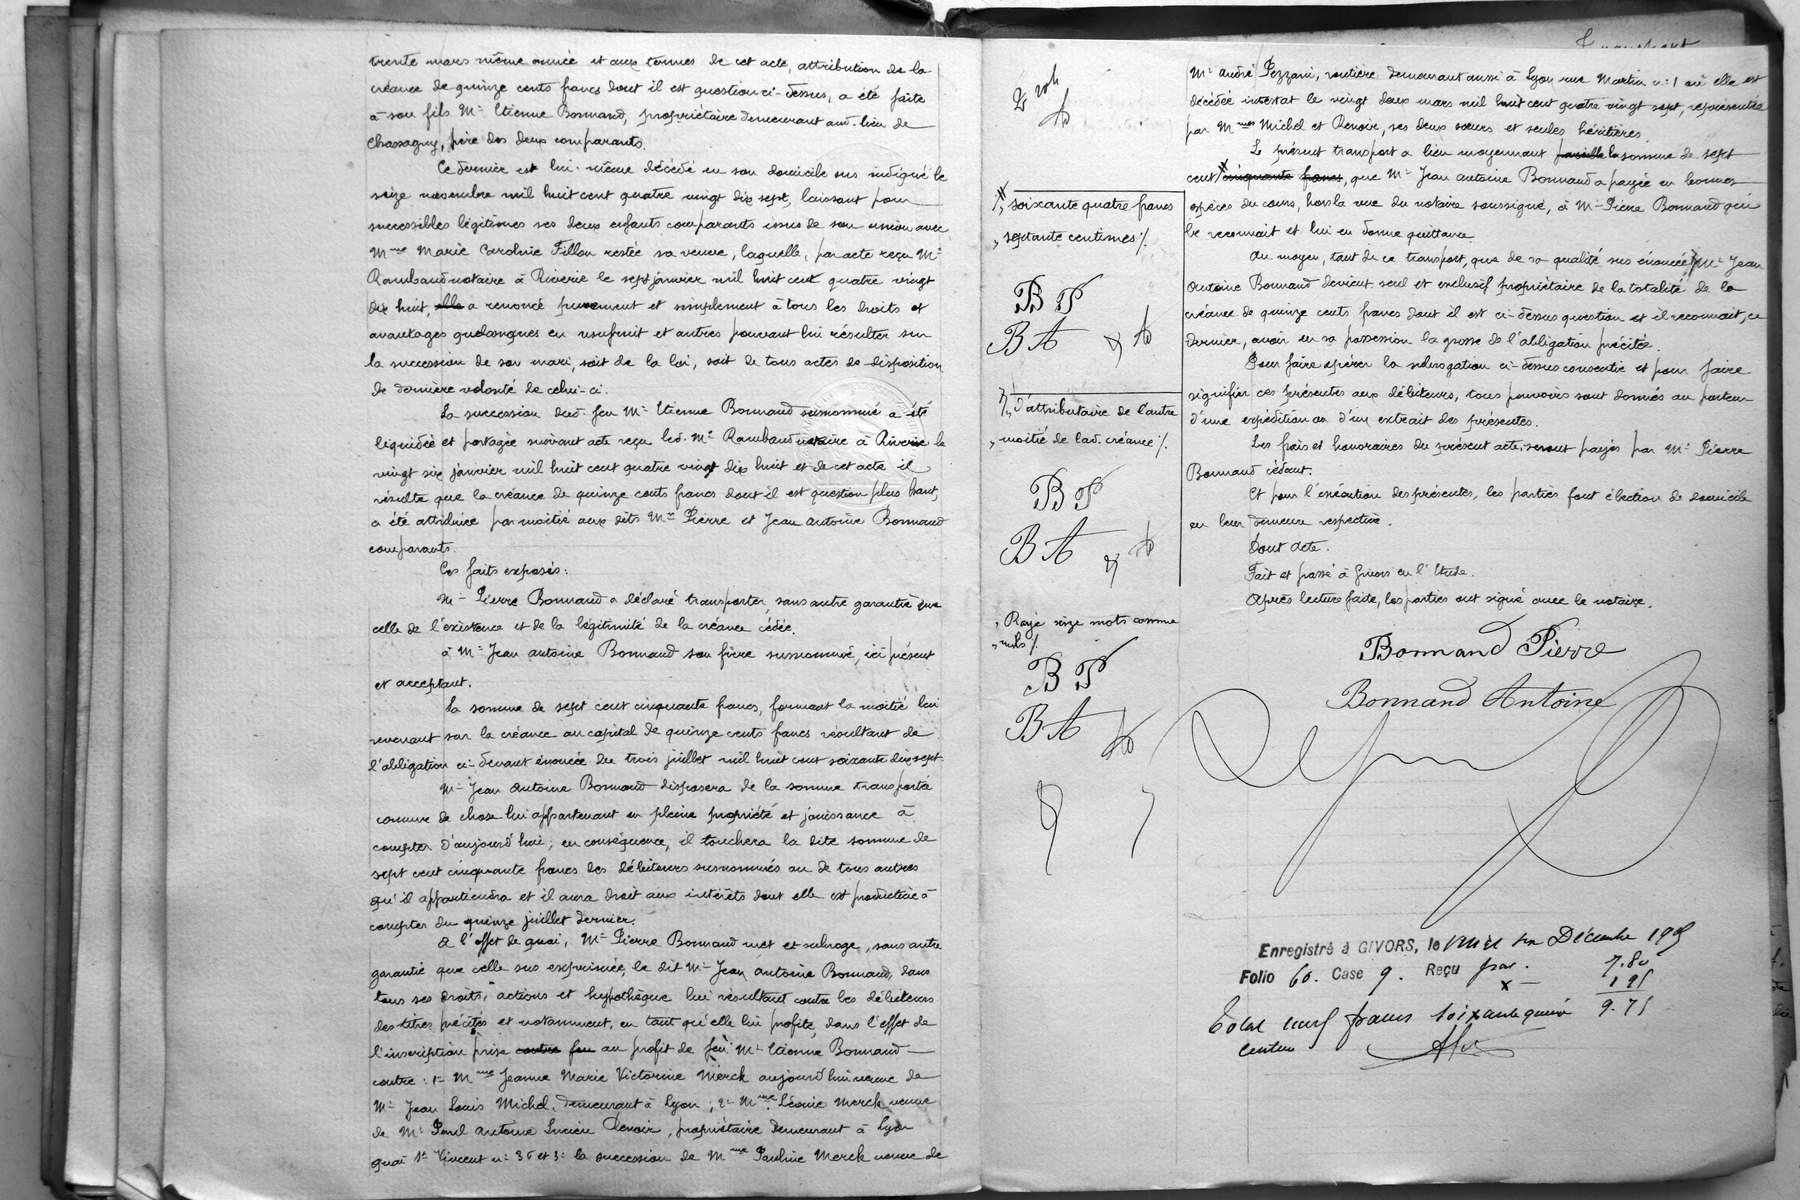 trente mars même année et aux termes de cet acte, attribution de la
créance de quinze cents francs dont il est question ci-dessus, a été faite
à son fils Mr Etienne Bonnand, propriétaire demeurant aud. lieu de
Chassagny, père des deux comparants.
Ce dernier est lui-même décédé en son domicile sus indiqué le
seize novembre mil huit cent quatre vingt dix sept, laissant pour
successibles légitimes ses deux enfants comparants issus de son union avec
Mme Marie Caroline Fillon restée sa veuve, laquelle, par acte reçu Me
Rambaud notaire à Riverie le sept janvier mil huit cent quatre vingt
dix huit, elle a renoncé purement et simplement à tous les droits et
avantages quelconques en usufruit et autres pouvant lui résulter sur
la succession de son mari, soit de la loi, soit de tous actes de disposition
de dernière volonté de celui-ci.
La succession dud. feu Mr Etienne Bonnand susnommé a été
liquidée et partagée suivant acte reçu led. Me Rambaud notaire à Riverie le
vingt six janvier mil huit cent quatre vingt dix huit et de cet acte il
résulte que la créance de quinze cents francs dont il est question plus haut,
a été attribuée par moitié aux dits Mrs Pierre et Jean Antoine Bonnand
comparants.
Ces faits exposés:
Mr Pierre Bonnand a déclaré transporter, sans autre garantie que
celle de l'existence et de la légitimité de la créance cédée.
à Mr Jean Antoine Bonnand son frère susnommé, ici présent
et acceptant.
La somme de sept cent cinquante francs, formant la moitié lui
revenant sur la créance au capital de quinze cents francs résultant de
l'obligation ci-devant énoncée du trois juillet mil huit cent soixante dix sept.
Mr Jean Antoine Bonnand disposera de la somme transportée
comme de chose lui appartenant en pleine propriété et jouissance à
compter d'aujourd'hui; en conséquence, il touchera la dite somme de
sept cent cinquante francs des débiteurs susnommés ou de tous autres
qu'il appartiendra et il aura droit aux intérêts dont elle est productive à
compter du quinze juillet dernier.
A l'effet de quoi, Mr Pierre Bonnand met et subroge, sans autre
garantie que celle sus exprimée, le dit Mr Jean Antoine Bonnand, dans
tous ses droits, actions et hypothèque lui résultant contre les débiteurs
des titres précités et notamment, en tant qu'elle lui profite, dans l'effet de
l'inscription prise contre feu au profit de feu Mr Etienne Bonnand
contre: 1° Mme Jeanne Marie Victorine Merck aujourd'hui veuve de
Mr Jean Louis Michel, demeurant à Lyon; 2° Mme Léonie Merck veuve
de Mr Paul Antoine Lucien Renoir, propriétaire demeurant à Lyon
quai St Vincent n° 36 et 3° la succession de Mme Pauline Merck veuve de
Mr André Pezzani, rentière demeurant aussi à Lyon rue Martin n° 1 où elle est
décédée intestat le vingt deux mars mil huit cent quatre vingt sept, représentée
par Mmes Michel et Renoir, ses deux sœurs et seules héritières.
Le présent transport a lieu moyennant pareille la somme de sept
cent cinquante francs, que Mr Jean Antoine Bonnand a payée en bonnes
espèces du cours, hors la vue du notaire soussigné, à Mr Pierre Bonnand qui
le reconnaît et lui en donne quittance.
Au moyen, tant de ce transport, que de sa qualité sus énoncée Mr Jean
Antoine Bonnand devient seul et exclusif propriétaire de la totalité de la
créance de quinze cents francs dont il est ci-dessus question et il reconnaît, ce
dernier, avoir en sa possession la grosse de l'obligation précitée.
Pour faire opérer la subrogation ci-dessus consentie et pour faire
signifier ces présentes aux débiteurs, tous pouvoirs sont donnés au porteur
d'une expédition ou d'un extrait des présentes.
Les frais et honoraires du présent acte, seront payés par Mr Pierre
Bonnand cédant.
Et pour l'exécution des présentes, les parties font élection de domicile
en leur demeure respective.
Dont Acte.
Fait et passé à Givors en l'Etude.
Après lecture faite, les parties ont signé avec le notaire.
Bonnand Pierre
Bonnand Antoine
soixante quatre francs
septante centimes
BP
BA
d'attributaire de l'autre
moitié de lad. créance
BP
BA
Rayé seize mots comme
nuls
BP
BA
Enregistré à GIVORS, le Décembre 19
Folio 60. Case 9. Reçu par.
7.80
1 95
9.75
Total neuf francs soixante quinze
centimes